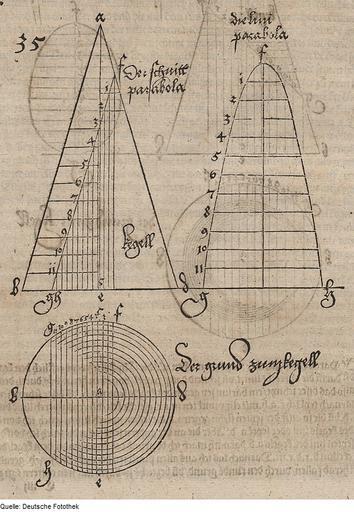 35
a
f
Der schnitt
parabola
die lini
parabola
f
1
2
3
4
5
6
7
8
9
10
11
1
2
3
4
5
6
7
8
9
10
11
kegell
b
gh
e
d
g
h
Der grund zum kegell
g
f
b
a
d
h
e
Quelle: Deutsche Fotothek